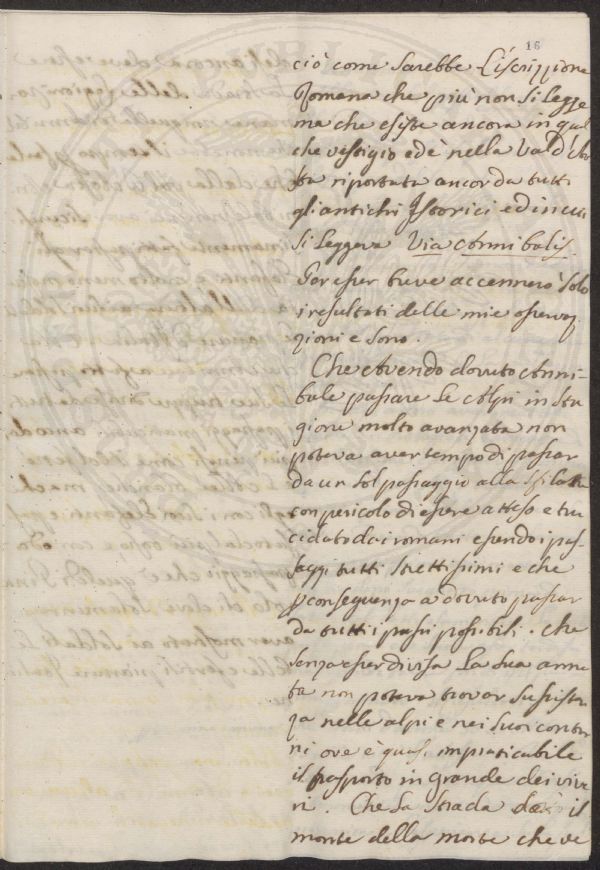 16
ciò come sarebbe L'iscrizzione
Romana che più non si legge
ma che esiste ancora in qual
che vestigio ed è nella Val d'Ao
sta riportata ancor da tutti
gli antichi Istorici ed in cui
si leggeva Via Annibalis.
Per esser breve accennerò solo
i resultati delle mie osservaz
zioni e sono.
Che Avendo dovuto Anni-
bale passare le Alpi in sta
gione molto avanzata non
poteva aver tempo di passar
da un sol passaggio alla
con pericolo di essere atteso e tru
cidato dai romani essendo i pas-
saggi tutti strettissimi e che
p conseguenza a dovuto passar
da tutti i passi possibili. che
senza esser divisa La sua arma
ta non poteva trovar sussisten
za nelle alpi e nei suoi contor
ni ove è quasi impraticabile
il trasporto in grande dei vive
ri. Che La strada il
monte della morte che ve